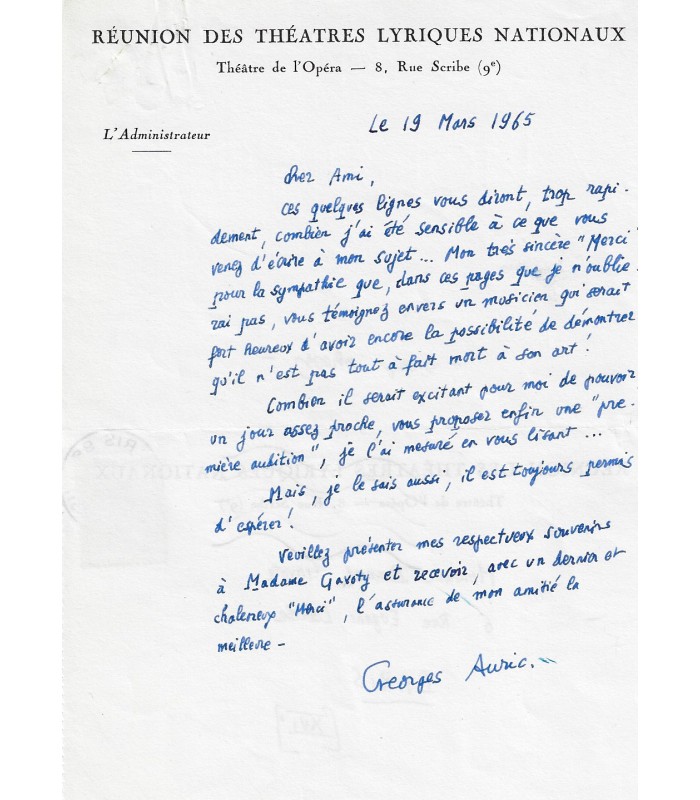 RÉUNION DES THÉATRES LYRIQUES NATIONAUX
Théâtre de l'Opéra — 8, Rue Scribe (9e)
L'Administrateur
Le 19 Mars 1965
Cher Ami,
Ces quelques lignes vous diront, trop rapi-
dement, combien j'ai été sensible à ce que vous
venez d'écrire à mon sujet... Mon très sincère "Merci"
pour la sympathie que, dans ces pages que je n'oublie-
rai pas, vous témoignez envers un musicien qui serait
fort heureux d'avoir encore la possibilité de démontrer
qu'il n'est pas tout à fait mort à son art!
Combien il serait excitant pour moi de pouvoir,
un jour assez proche, vous proposer enfin une "pre-
mière audition", je l'ai mesuré en vous lisant...
Mais, je le sais aussi, il est toujours permis
d'espérer!
Veuillez présenter mes respectueux souvenirs
à Madame Gavoty et recevoir, avec un dernier et
chaleureux "Merci", l'assurance de mon amitié la
meilleure -
Georges Auric.